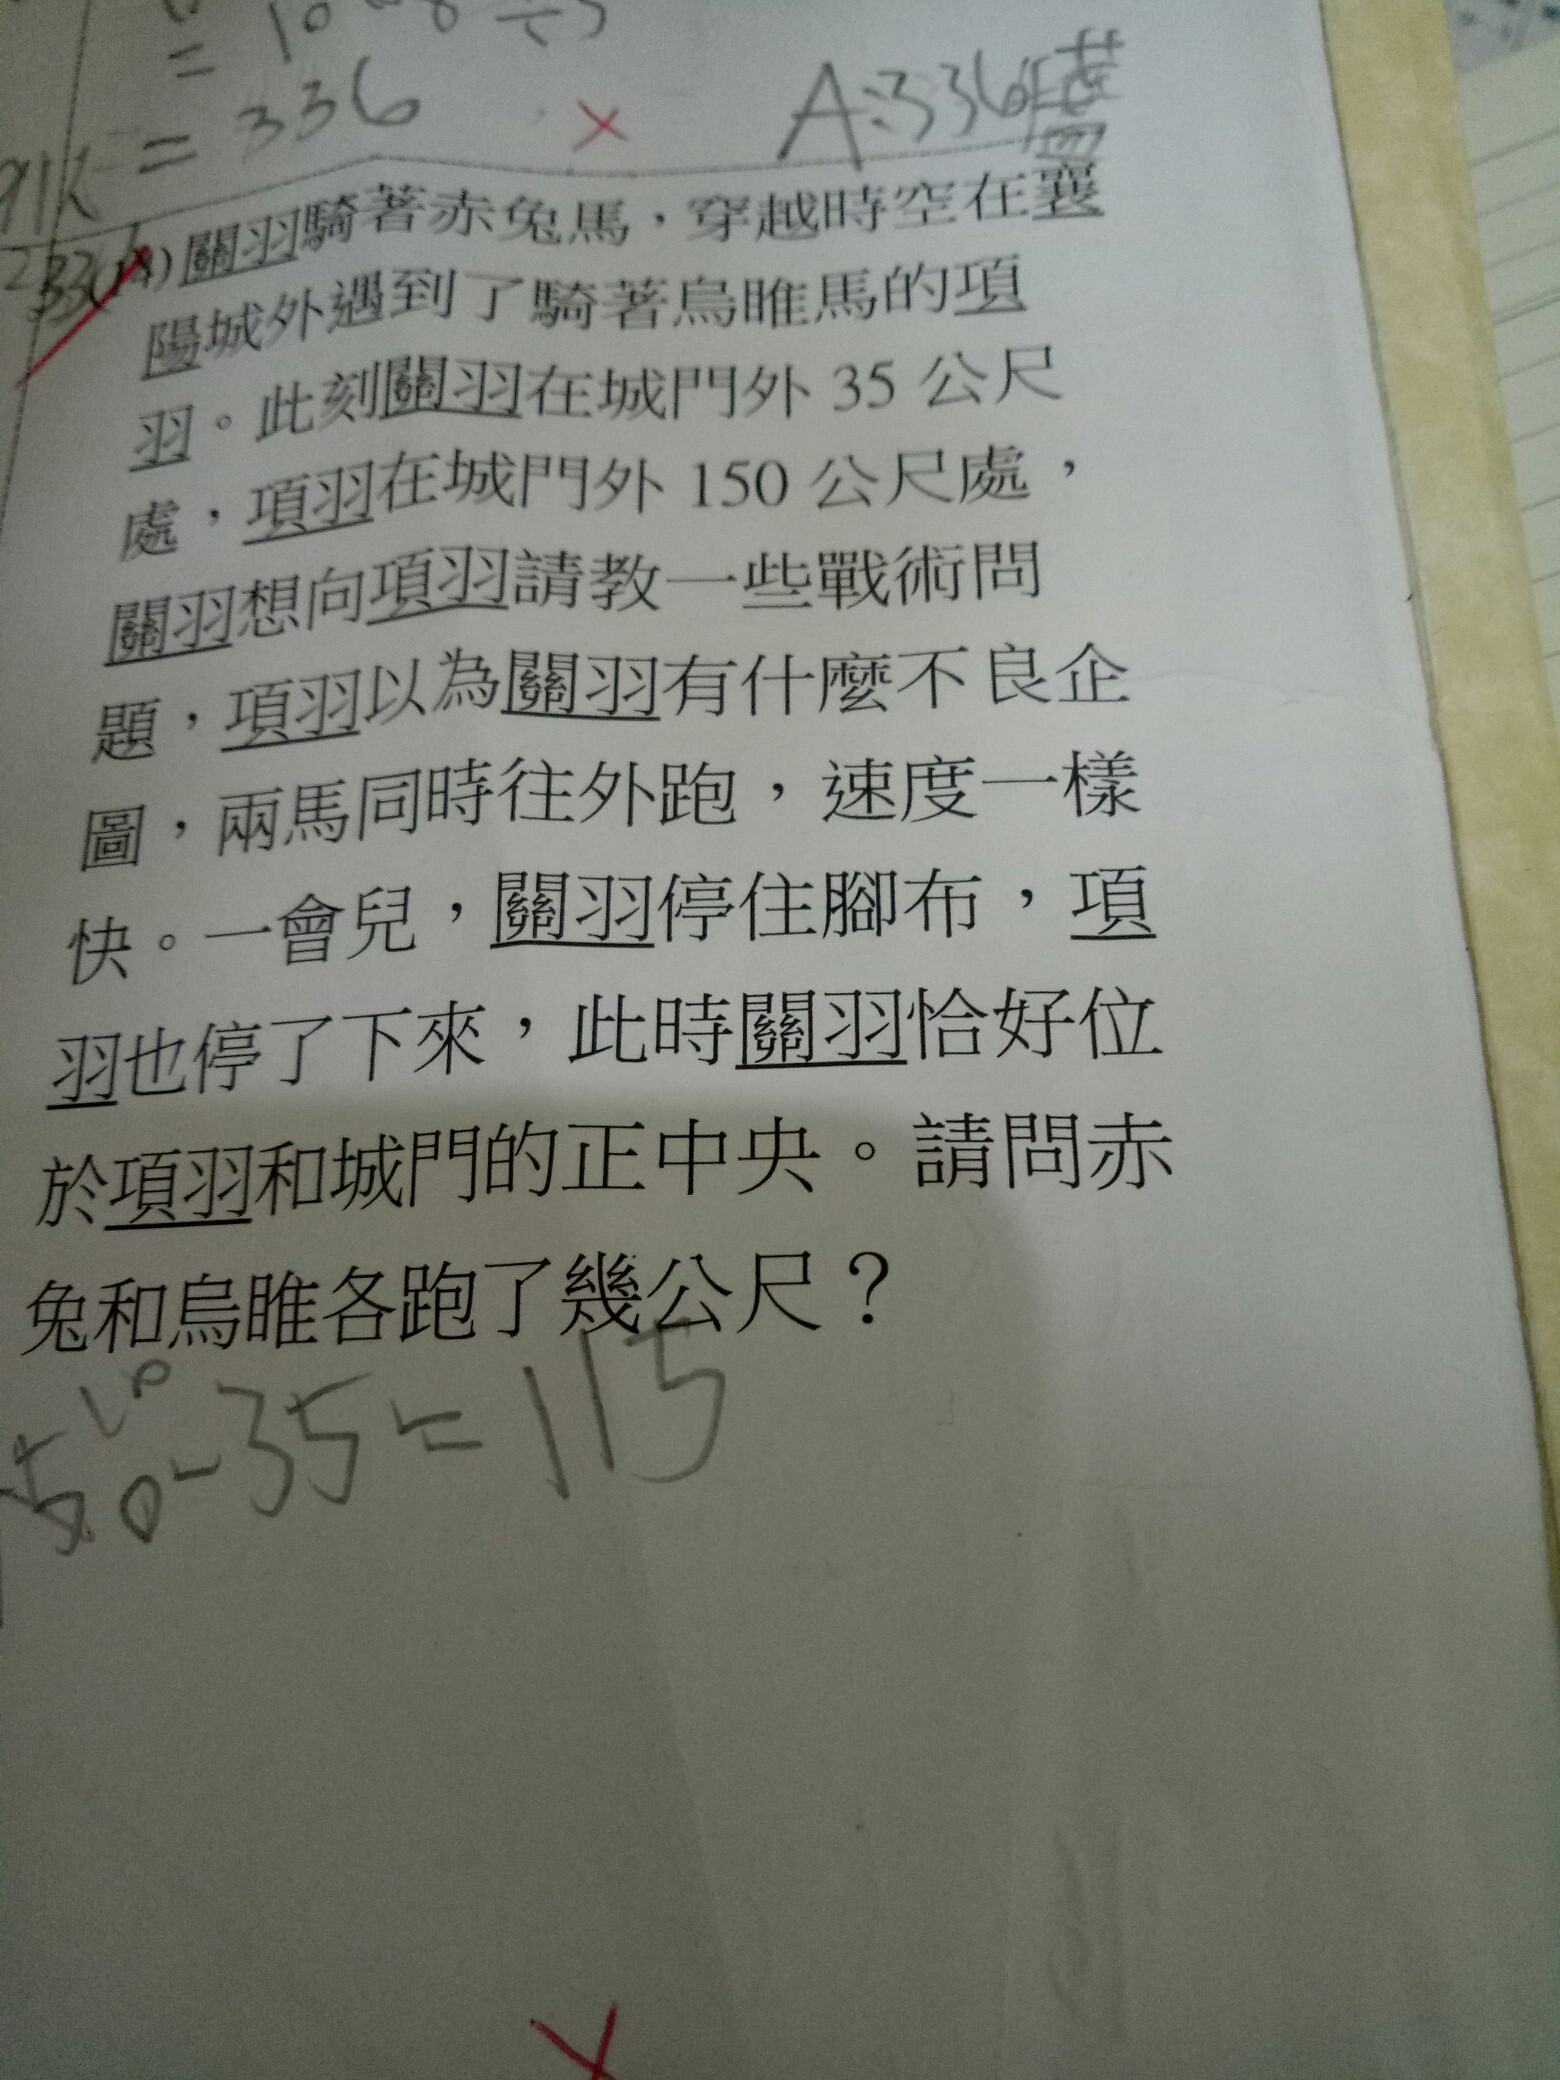 = 336
A:336
(18)關羽騎著赤兔馬，穿越時空在襄
陽城外遇到了騎著烏睢馬的項
羽。此刻關羽在城門外 35 公尺
處，項羽在城門外 150 公尺處，
關羽想向項羽請教一些戰術問
題，項羽以為關羽有什麼不良企
圖，兩馬同時往外跑，速度一樣
快。一會兒，關羽停住腳布，項
羽也停了下來，此時關羽恰好位
於項羽和城門的正中央。請問赤
兔和烏睢各跑了幾公尺？
10
150-35=115